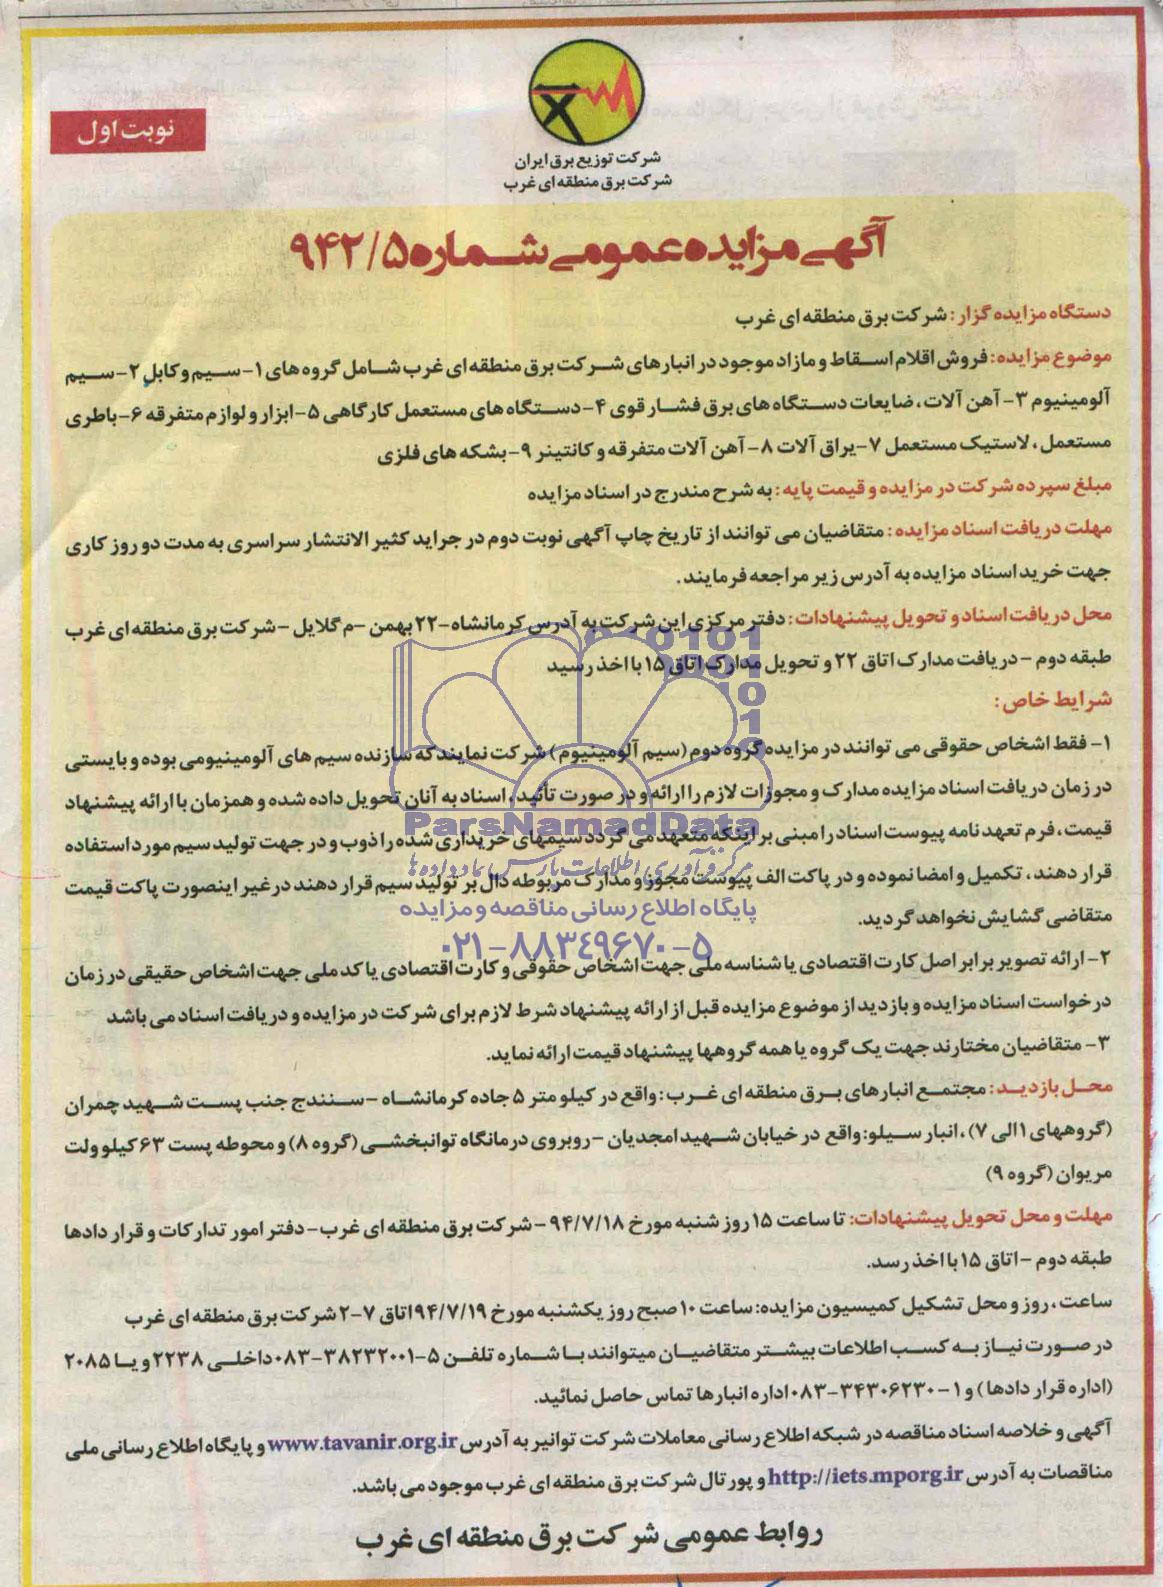 شرکت توزیع برق ایران
شرکت برق منطقه ای غرب
نوبت اول
آگهی مزایده عمومی شماره ۹۴۲/۵
دستگاه مزایده گزار: شرکت برق منطقه ای غرب
موضوع مزایده: فروش اقلام اسقاط و مازاد موجود در انبارهای شرکت برق منطقه ای غرب شامل گروه های ۱- سیم و کابل ۲- سیم
آلومینیوم ۳- آهن آلات، ضایعات دستگاه های برق فشار قوی ۴- دستگاه های مستعمل کارگاهی ۵- ابزار و لوازم متفرقه ۶- باطری
مستعمل، لاستیک مستعمل ۷- یراق آلات ۸- آهن آلات متفرقه و کانتینر ۹- بشکه های فلزی
مبلغ سپرده شرکت در مزایده و قیمت پایه: به شرح مندرج در اسناد مزایده
مهلت دریافت اسناد مزایده: متقاضیان می توانند از تاریخ چاپ آگهی نوبت دوم در جراید کثیر الانتشار سراسری به مدت دو روز کاری
جهت خرید اسناد مزایده به آدرس زیر مراجعه فرمایند.
محل دریافت اسناد و تحویل پیشنهادات: دفتر مرکزی این شرکت به آدرس کرمانشاه- ۲۲ بهمن - م گلایل - شرکت برق منطقه ای غرب
طبقه دوم - دریافت مدارک اتاق ۲۲ و تحویل مدارک اتاق ۱۵ با اخذ رسید
شرایط خاص:
۱- فقط اشخاص حقوقی می توانند در مزایده گروه دوم (سیم آلومینیوم) شرکت نمایند که سازنده سیم های آلومینیومی بوده و بایستی
در زمان دریافت اسناد مزایده مدارک و مجوزات لازم را ارائه و در صورت تأئید، اسناد به آنان تحویل داده شده و همزمان با ارائه پیشنهاد
قیمت، فرم تعهدنامه پیوست اسناد را مبنی بر اینکه متعهد می گردد سیمهای خریداری شده را ذوب و در جهت تولید سیم مورد استفاده
قرار دهند، تکمیل و امضا نموده و در پاکت الف پیوست مجوز و مدارک مربوطه دال بر تولید سیم قرار دهند در غیر اینصورت پاکت قیمت
متقاضی گشایش نخواهد گردید.
ParsNamadData
مرکز فرآوری اطلاعات پارس نماد داده ها
پایگاه اطلاع رسانی مناقصه و مزایده
۰۲۱-۸۸۳۴۹۶۷۰-۵
۲- ارائه تصویر برابر اصل کارت اقتصادی یا شناسه ملی جهت اشخاص حقوقی و کارت اقتصادی یا کد ملی جهت اشخاص حقیقی در زمان
درخواست اسناد مزایده و بازدید از موضوع مزایده قبل از ارائه پیشنهاد شرط لازم برای شرکت در مزایده و دریافت اسناد می باشد
۳- متقاضیان مختارند جهت یک گروه یا همه گروهها پیشنهاد قیمت ارائه نماید.
محل بازدید: مجتمع انبارهای برق منطقه ای غرب: واقع در کیلومتر ۵ جاده کرمانشاه - سنندج جنب پست شهید چمران
(گروههای ۱ الی ۷)، انبار سیلو: واقع در خیابان شهید امجدیان - روبروی درمانگاه توانبخشی (گروه ۸) و محوطه پست ۶۳ کیلو ولت
مریوان (گروه ۹)
مهلت و محل تحویل پیشنهادات: تا ساعت ۱۵ روز شنبه مورخ ۹۴/۷/۱۸ - شرکت برق منطقه ای غرب- دفتر امور تدارکات و قرار دادها
طبقه دوم - اتاق ۱۵ با اخذ رسد.
ساعت، روز و محل تشکیل کمیسیون مزایده: ساعت ۱۰ صبح روز یکشنبه مورخ ۹۴/۷/۱۹ اتاق ۷-۲ شرکت برق منطقه ای غرب
در صورت نیاز به کسب اطلاعات بیشتر متقاضیان میتوانند با شماره تلفن ۵-۳۸۲۳۲۰۰۱-۰۸۳ داخلی ۲۲۳۸ و یا ۲۰۸۵
(اداره قرار دادها) و ۱-۳۴۳۰۶۲۳۰-۰۸۳ اداره انبارها تماس حاصل نمائید.
آگهی و خلاصه اسناد مناقصه در شبکه اطلاع رسانی معاملات شرکت توانیر به آدرس www.tavanir.org.ir و پایگاه اطلاع رسانی ملی
مناقصات به آدرس http://iets.mporg.ir و پورتال شرکت برق منطقه ای غرب موجود می باشد.
روابط عمومی شرکت برق منطقه ای غرب